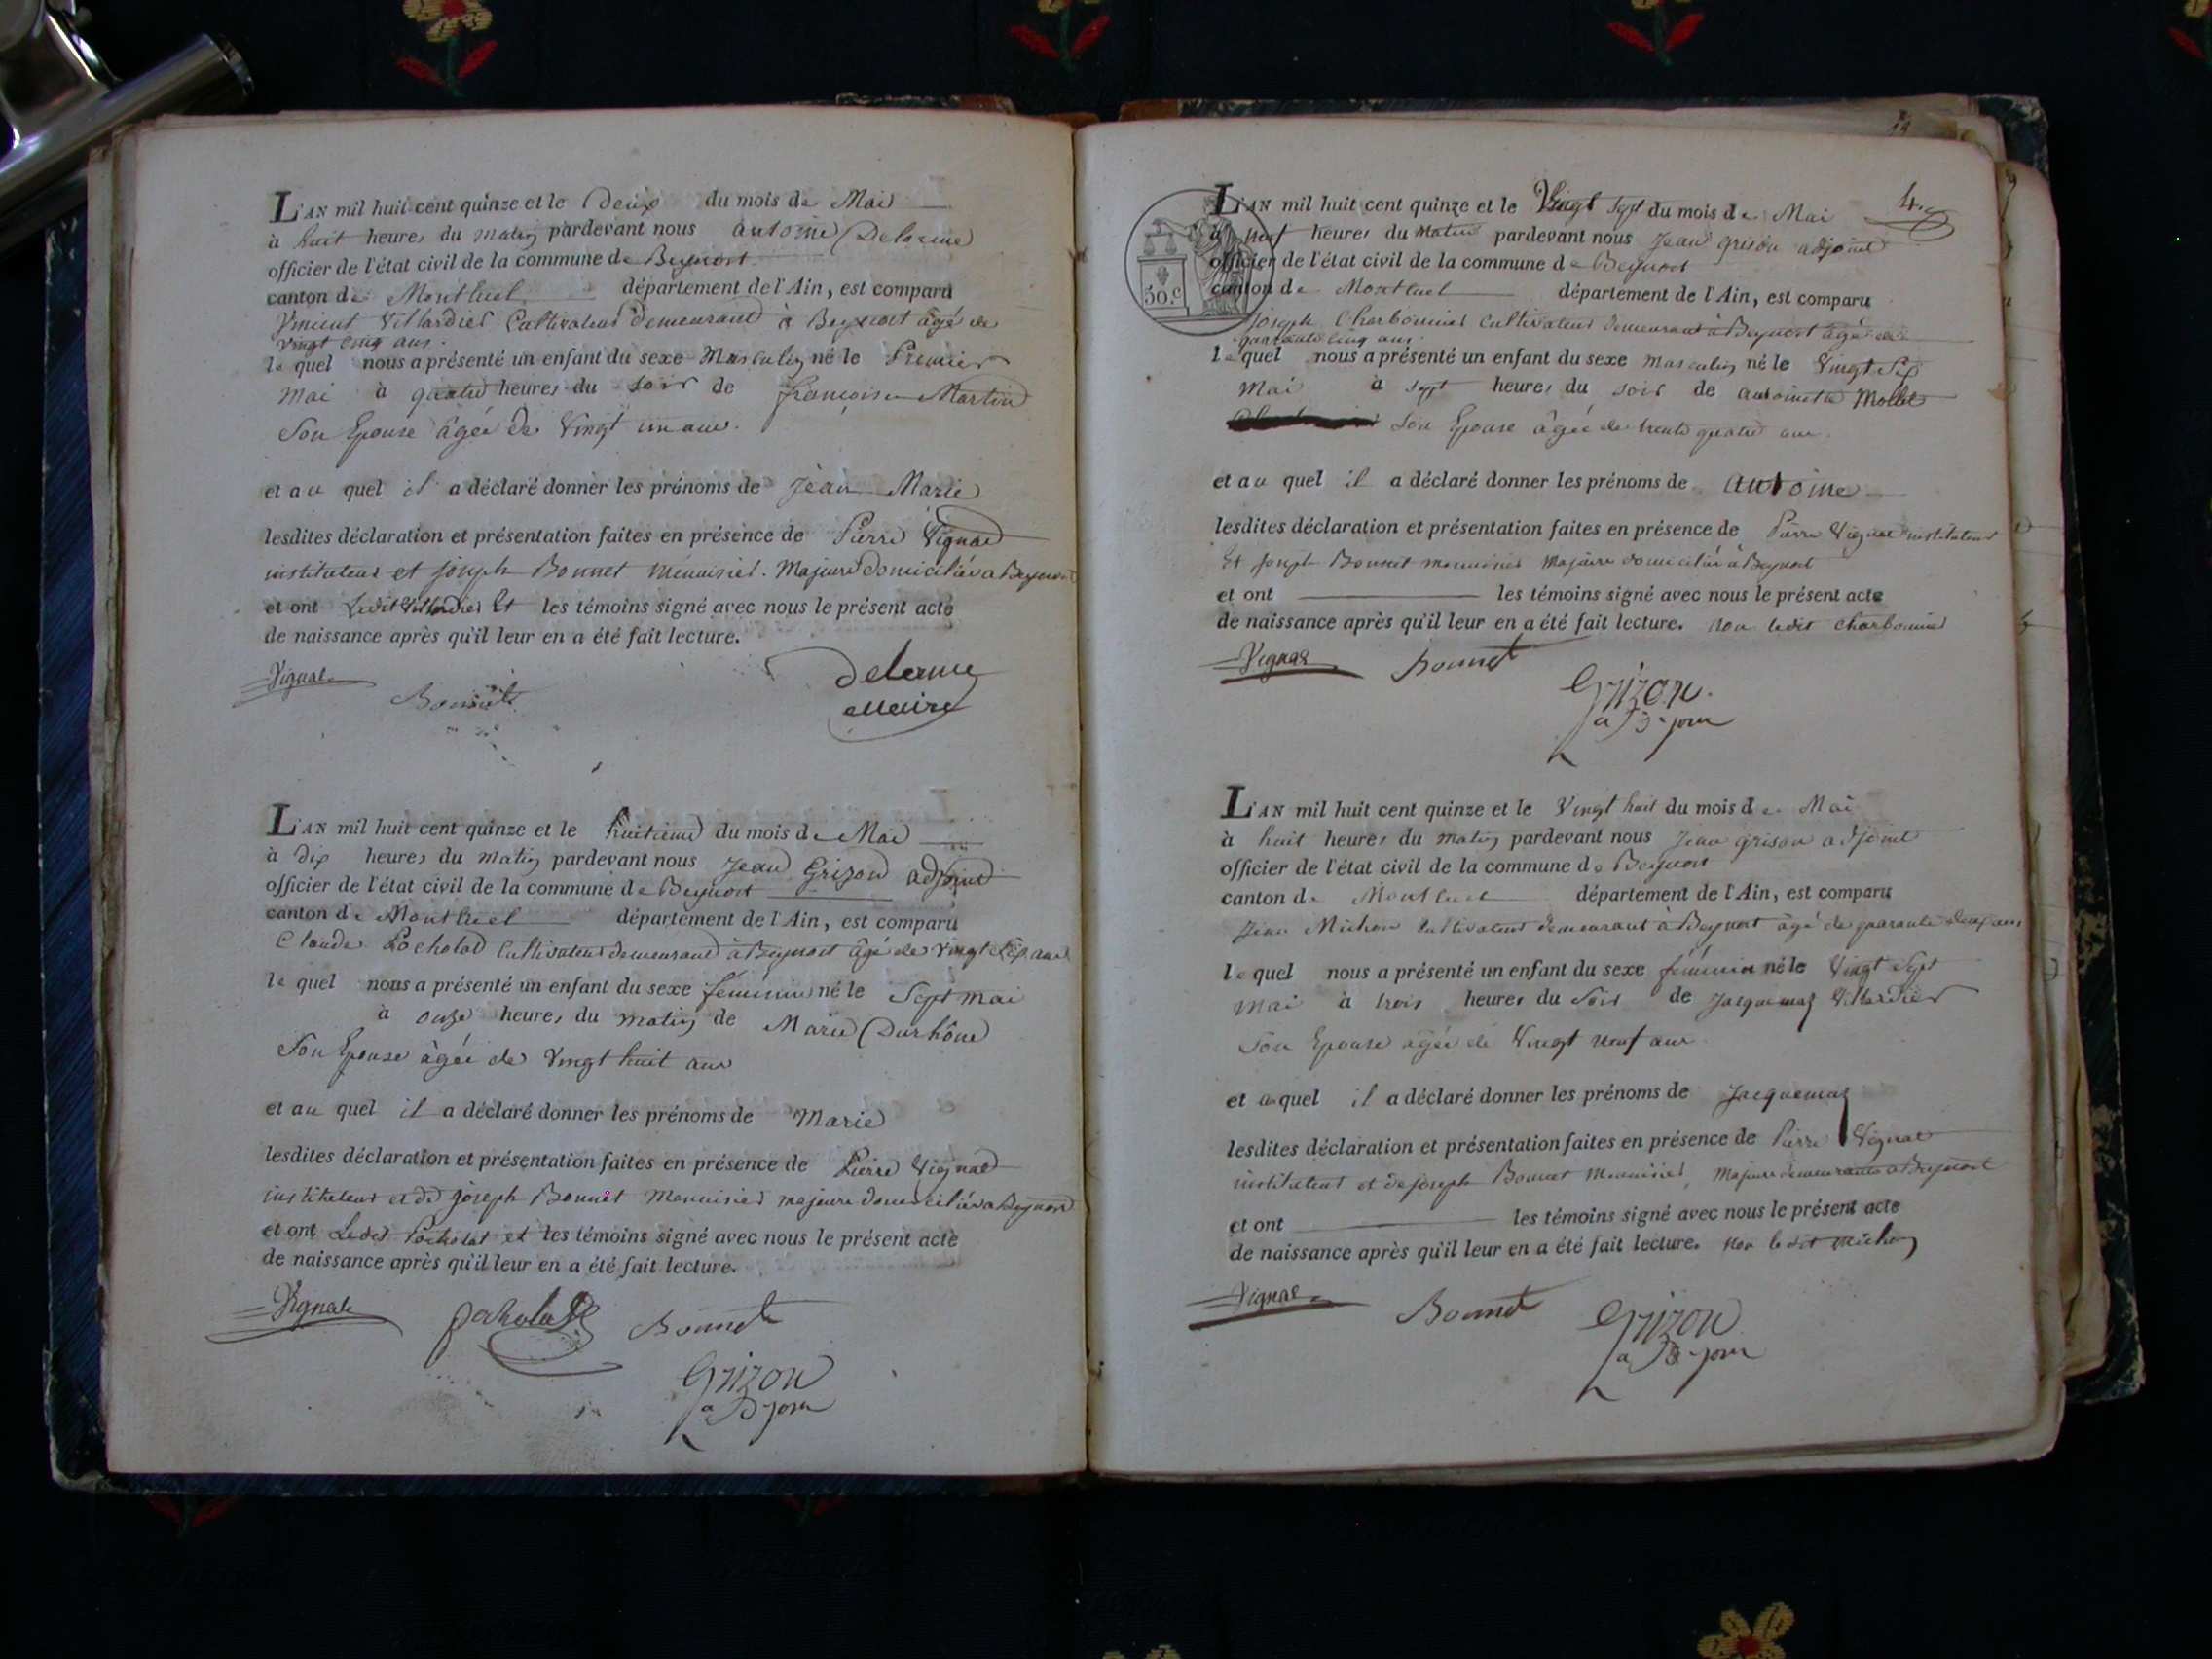 L'AN mil huit cent quinze et le Deux du mois de Mai
à huit heures du matin pardevant nous antoine Delorme
officier de l'état civil de la commune de Beynost
canton de Montluel département de l'Ain, est comparu
Vincent Villardier Cultivateur demeurant à Beynost âgé de
vingt cinq ans.
le quel nous a présenté un enfant du sexe Masculin né le Premier
mai à quatre heures du soir de françoise Martin
Son Epouse âgée de Vingt un ans.
et au quel il a déclaré donner les prénoms de Jean Marie
lesdites déclaration et présentation faites en présence de Pierre Vignal
instituteur et joseph Bonnet menuisier. Majeurs domiciliés a Beynost
et ont Ledit Villardier Et les témoins signé avec nous le présent acte
de naissance après qu'il leur en a été fait lecture.
Vignal Bonnet Delorme
Maire
L'AN mil huit cent quinze et le huitième du mois de Mai
à Dix heures du matin pardevant nous Jean Grizon adjoint
officier de l'état civil de la commune de Beynost
canton de Montluel département de l'Ain, est comparu
Claude Pocholat Cultivateur demeurant à Beynost âgé de vingt six ans
le quel nous a présenté un enfant du sexe féminin né le Sept mai
à onze heures du matin de Marie Durhône
Son Epouse âgée de Vingt huit ans
et au quel il a déclaré donner les prénoms de Marie
lesdites déclaration et présentation faites en présence de Pierre Vignal
instituteur et de joseph Bonnet Menuisier majeurs domiciliés a Beynost
et ont Ledit Pocholat et les témoins signé avec nous le présent acte
de naissance après qu'il leur en a été fait lecture.
Vignal pocholat Bonnet
Grizon
adjoin
4e
50.c
L'AN mil huit cent quinze et le Vingt sept du mois de Mai
à neuf heures du matin pardevant nous Jean grison adjoint
officier de l'état civil de la commune de Beynost
canton de Montluel département de l'Ain, est comparu
joseph Charbonnier cultivateur demeurant à Beynost âgé de
quarante cinq ans.
le quel nous a présenté un enfant du sexe masculin né le Vingt Six
mai à sept heures du soir de antoinette Mollet
Son Epouse âgée de trente quatre ans.
et au quel il a déclaré donner les prénoms de antoine
lesdites déclaration et présentation faites en présence de Pierre Vignal instituteur
Et joseph Bonnet menuisier Majeurs domiciliés à Beynost
et ont les témoins signé avec nous le présent acte
de naissance après qu'il leur en a été fait lecture. non ledit charbonnier
Vignal Bonnet
Grizon.
adjoin
L'AN mil huit cent quinze et le Vingt huit du mois de Mai
à huit heures du matin pardevant nous Jean grison adjoint
officier de l'état civil de la commune de Beynost
canton de Montluel département de l'Ain, est comparu
Jean Michon Cultivateur demeurant à Beynost âgé de quarante deux ans
le quel nous a présenté un enfant du sexe féminin né le Vingt Sept
mai à trois heures du Soir de Jacquemaz Villardier
Son Epouse âgée de Vingt neuf ans
et a quel il a déclaré donner les prénoms de Jacquemaz
lesdites déclaration et présentation faites en présence de Pierre Vignal
instituteur et de joseph Bonnet Menuisier, Majeurs demeurants a Beynost
et ont les témoins signé avec nous le présent acte
de naissance après qu'il leur en a été fait lecture. non ledit michon
Vignal Bonnet Grizon
adjoin